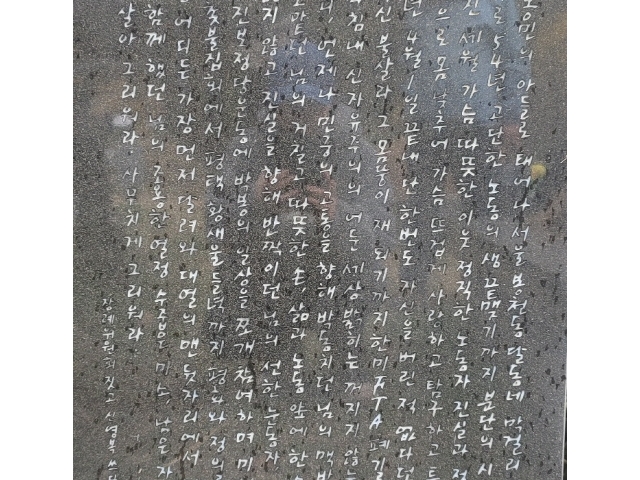 농민의 아들로 태어나 서울 봉천동 달동네 막걸리
로 54년 고단한 노동의 생 끝맺기까지 분단의 시
진 세월 가슴 따뜻한 이웃 정직한 노동자 진실과 정
으로 몸 낮추어 가슴 뜨겁게 사랑하고 탐구하고 투
년 4월 1일 끝내 단 한번도 자신을 버린 적 없다던
신 불살라 그 몸뚱이 재 되기까지 한미FTA 폐기
침내 신자유주의의 어둔 세상 밝히는 꺼지지 않는
니, 언제나 민중의 고동을 향해 박동치던 님의 맥박
도맡던 님의 거칠고 따뜻한 손, 삶과 노동 앞에 한
지 않고 진실을 향해 반짝이던 님의 선한 눈동자
진보정당운동에 박봉의 일상을 쪼개 참여하며 미
촛불집회에서 평택 황새울 들녘까지 평화와 정의
어디든 가장 먼저 달려와 대열의 맨 뒷자리에서
함께 했던 님의 조용한 열정 수줍은 미소, 남은 자
살아 그리워라, 사무치게 그리워라
장례위원회 짓고 신영복 쓰다